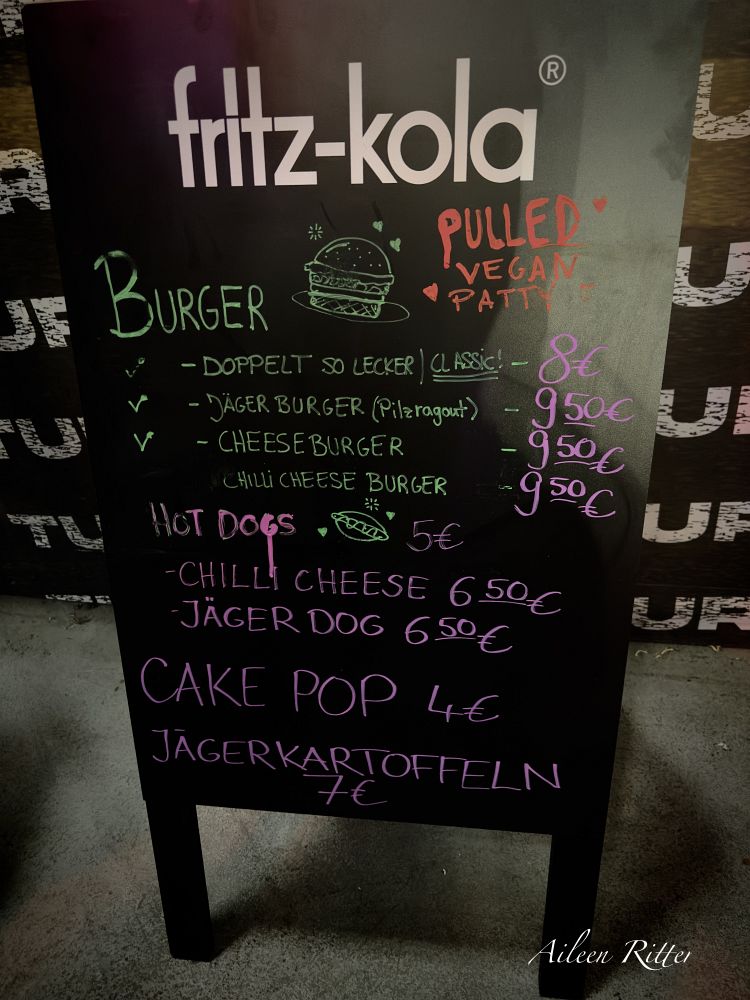 fritz-kola®
PULLED
VEGAN
PATTY
BURGER
- DOPPELT SO LECKER | CLASSIC! - 8€
- JÄGER BURGER (Pilzragout) - 9 50€
- CHEESEBURGER - 9 50€
CHILLI CHEESE BURGER - 9 50€
HOT DOGS 5€
- CHILLI CHEESE 6 50€
- JÄGER DOG 6 50€
CAKE POP 4€
JÄGERKARTOFFELN
7€
Aileen Ritter